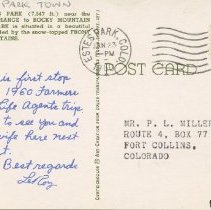 PARK TOWN
S PARK (7,547 ft.) near the
RANCE TO ROCKY MOUNTAIN
PARK is situated in a beautiful
ded by the snow-topped FRONT
TAINS.
ESTES PARK, COLO.
PM
POST CARD
is first stop
1960 Farmers
Life Agents trip
to see you and
wife here next
t.
Best regards
LeRoy
MR. P. L. MILLER
ROUTE 4, BOX 77
FORT COLLINS,
COLORADO